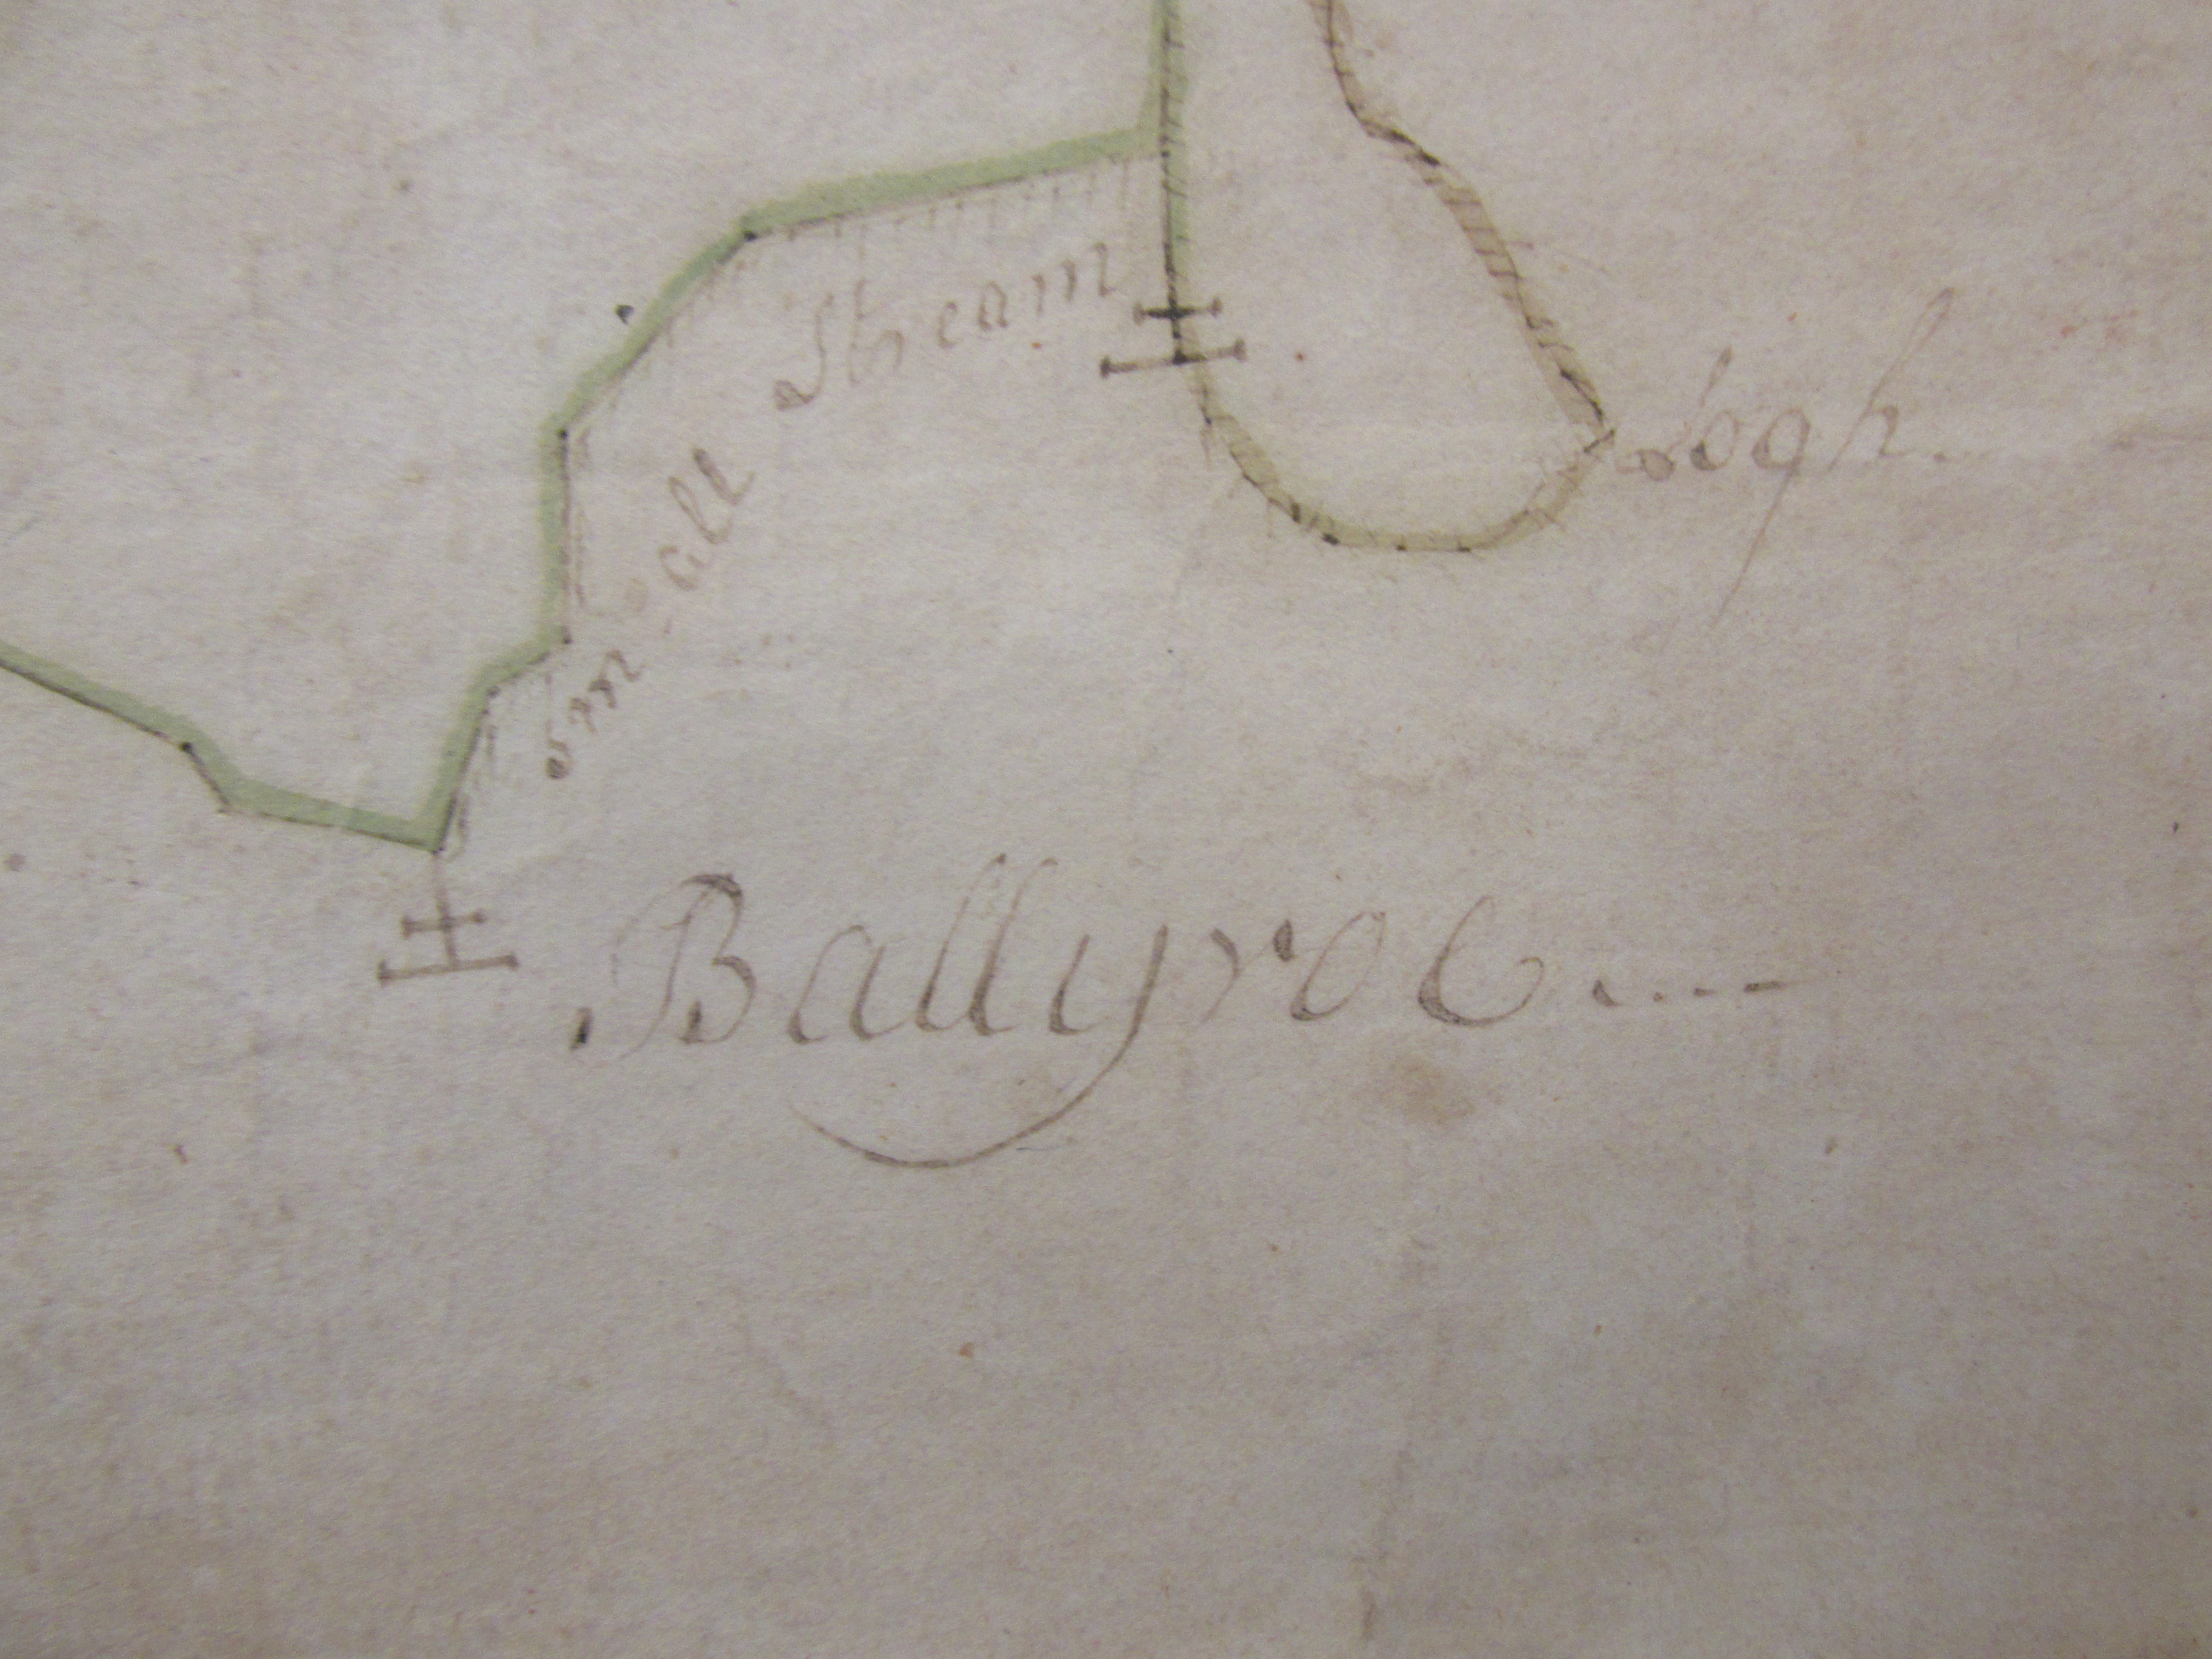 Small Stream
Logh.
Ballyroe....